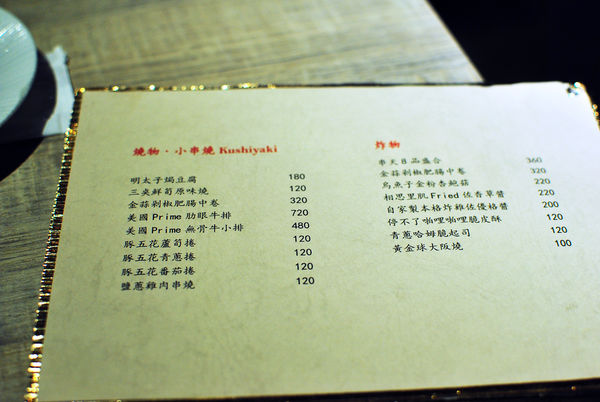 燒物・小串燒 Kushiyaki
明太子焗豆腐 180
三夾鮮筍原味燒 120
金蒜剝椒肥腸中卷 320
美國 Prime 肋眼牛排 720
美國 Prime 無骨牛小排 480
豚五花蘆筍捲 120
豚五花青蔥捲 120
豚五花番茄捲 120
鹽蔥雞肉串燒 120
炸物
串天8品盛合 360
金蒜剝椒肥腸中卷 320
烏魚子金粉杏鮑菇 220
相思里肌Fried佐香草醬 220
自家製本格炸雞佐優格醬 200
停不了啪哩啪哩脆皮酥 120
青蔥哈姆脆起司 120
黃金球大阪燒 100